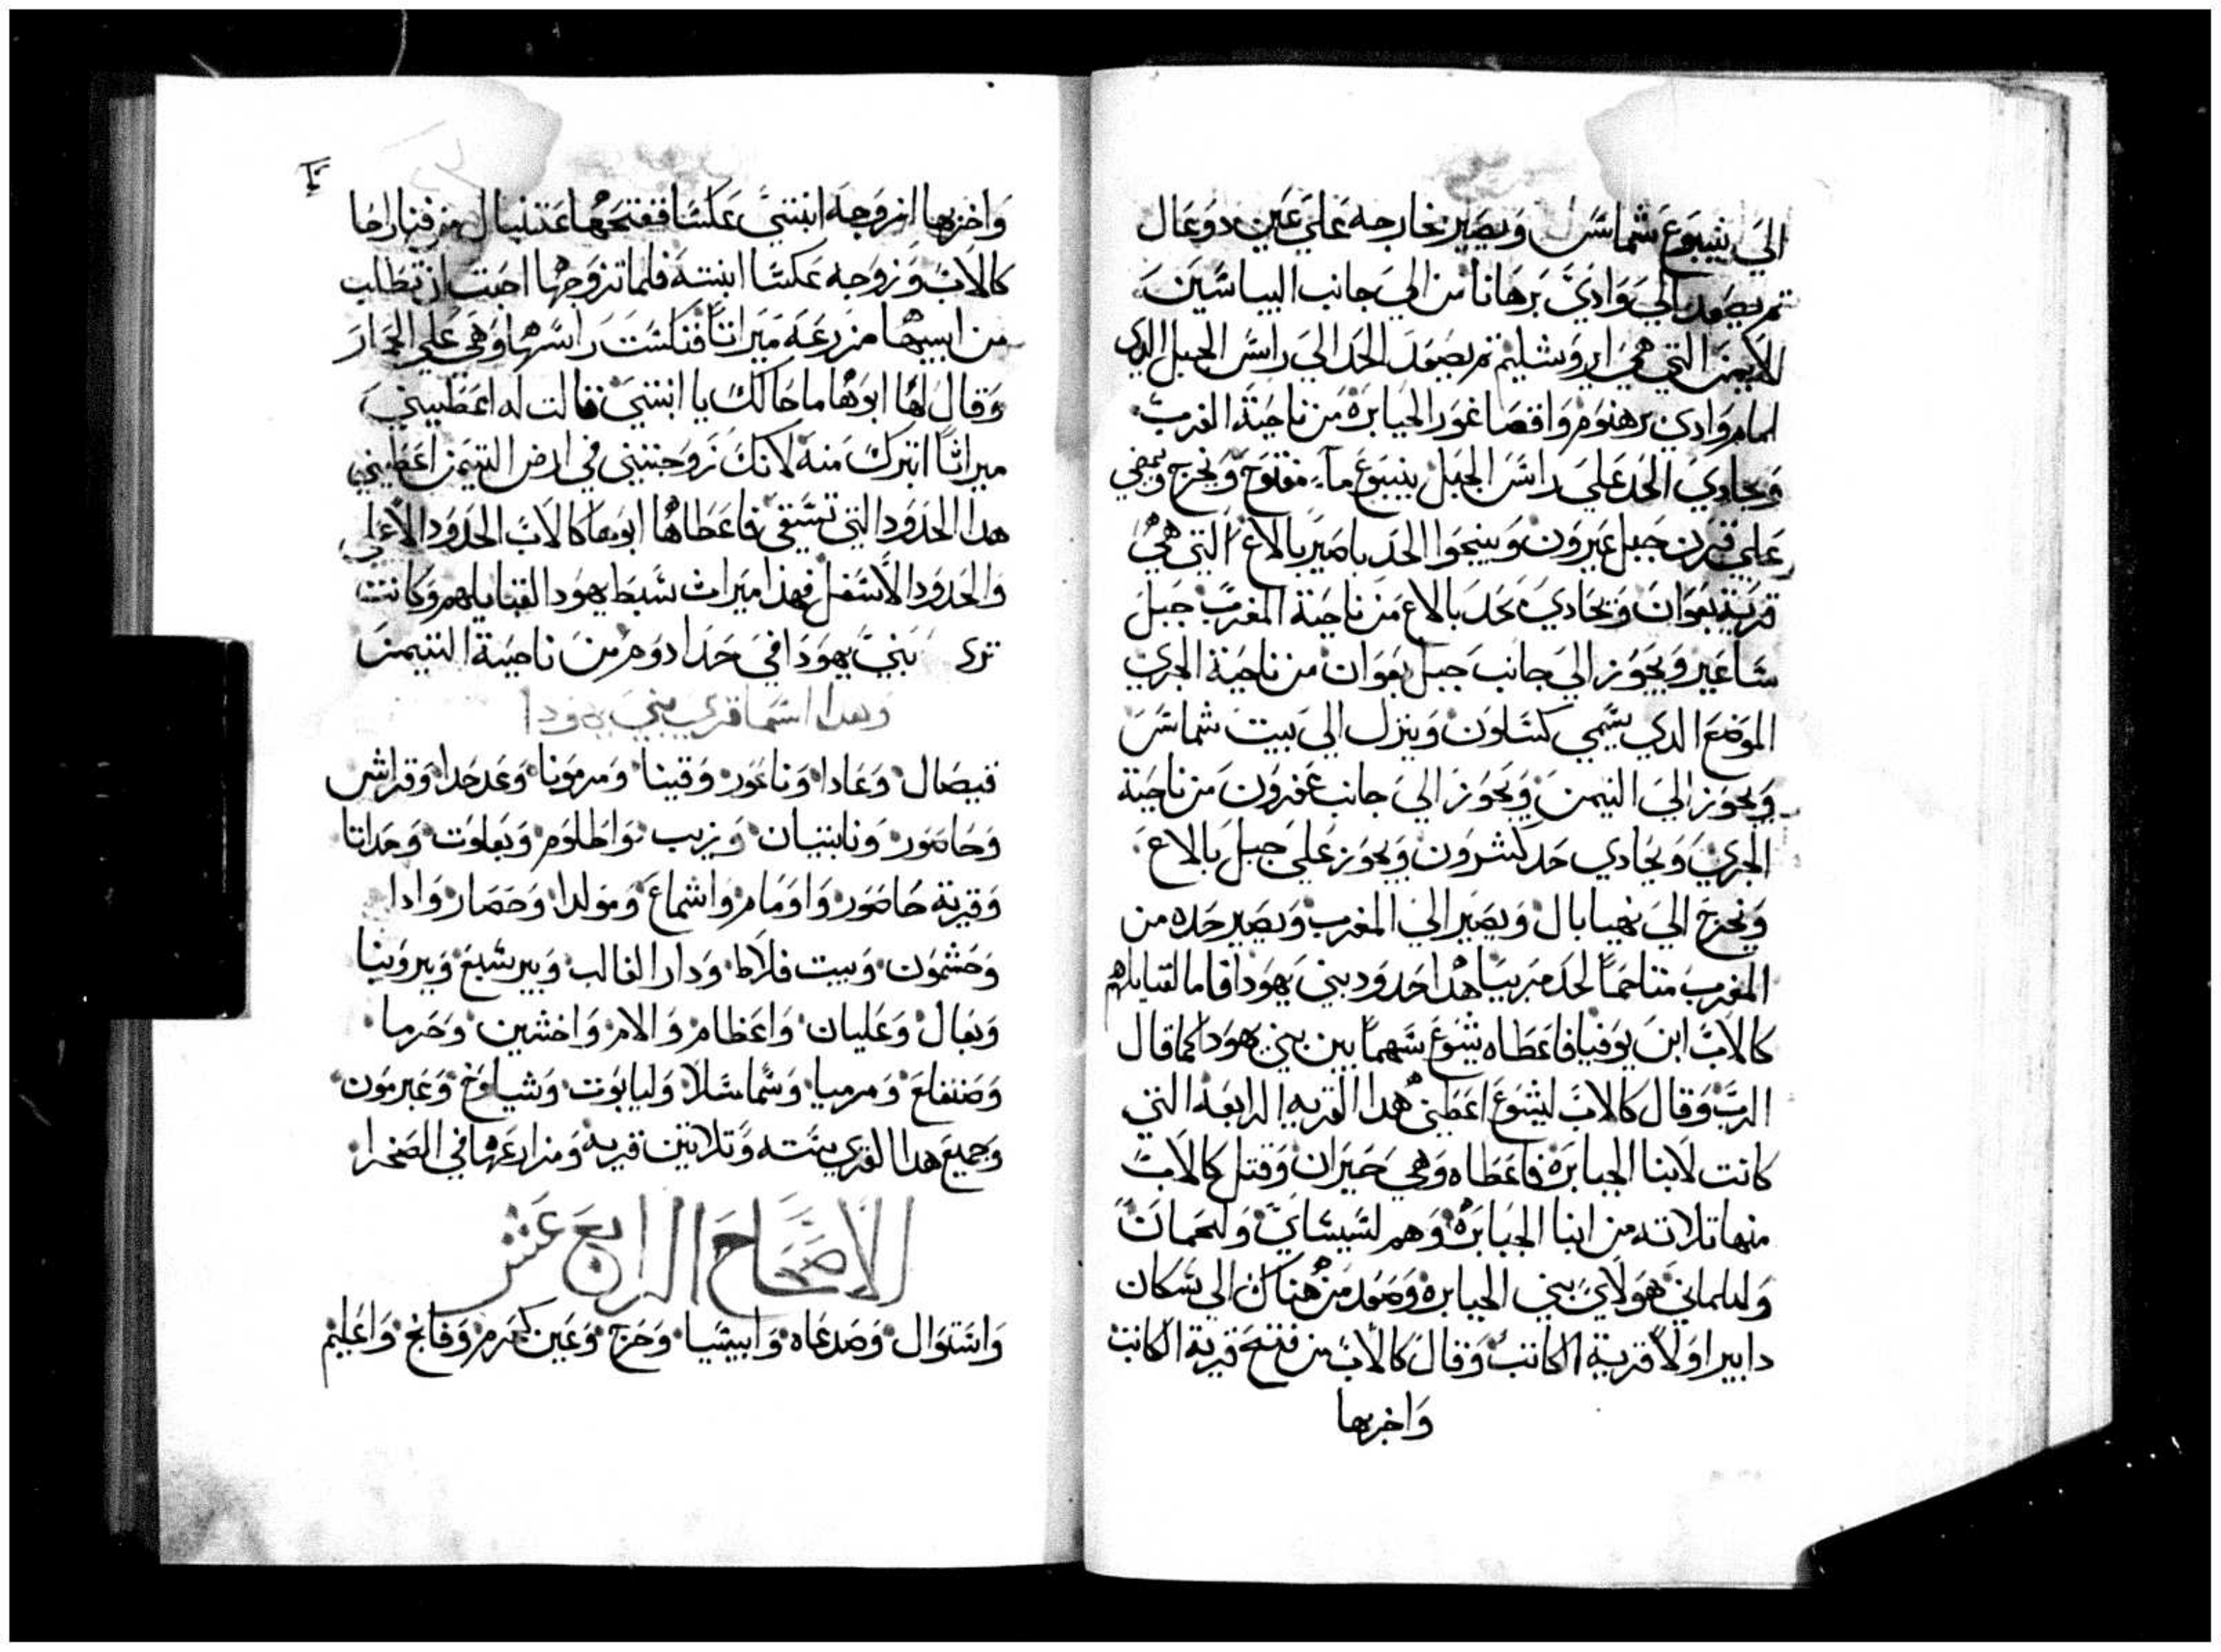 الي ينبوع شماشس ويصير مخارجه علي عين دوعال
تم يصعد الي وادي برهاناس الي جانب اليباسين
الايمن التي هي ايروشليم تم يصعد الحد الي راس الجبل الدي
امام وادي برهنوم واقصا غور الجبابرة من ناحية الغرب
ويحادي الحد علي راس الجبل ينبوع ماء مفتوح ويخرج ويمضي
علي قرن جبل عبرون وينحوا الحد يا صير بالاع التي هي
قرية بعوان ويحادي حد بالاع من ناحية المغرب جبل
ساعير ويجوز الي جانب جبل بعوان من ناحية الجري
الموضع الدي يسمي كسلون وينزل الي بيت شماس
ويجوز الي التيمن ويجوز الي جانب عفرون من ناحية
الجري ويحادي حد كشرون ويجوز علي جبل بالاع
ويخرج الي نهيا بال ويصير الي المغرب ويصير حده من
المغرب متاخما لحد هدا حدود بني يهودا فاما لقبايلهم
كالاب ابن يوفيا فاعطاه يشوع سهما بين بني يهودا كما قال
الرب وقال كالاب ليشوع اعطني هدا القريه الرابعه التي
كانت لابنا الجبابرة فاعطاه وهي حبران وقتل كالاب
منها تلاته من ابنا الجبابرة وهم لسيساي ولحمان
ولتلماني هولاي بني الجبابرة وصعد من هناك الي سكان
دابير اولا قرية الكاتب وقال كالاب من فتح قرية الكاتب
واخربها
واخربها ازوجه ابنتي عكسا ففتحها عتنيال من قنار اخا
كالاب وزوجه عكسا ابنته فلما تزوجها احبت ان تطلب
من ابيها مزرعه ميراتا فنكست راسها وهي علي الحمار
وقال لها ابوها ما حالك يا ابنتي قالت له اعطيني
ميراتا اتبرك منه لانك زوجتني في ارض التيمن اعطيني
هدا الحدود التي تسقي فاعطاها ابوها كالاب الحدود الاعلي
والحدود الاسفل فهذا ميرات سبط يهودا لقبايلهم وكانت
تري بني يهودا في حد ادوم من ناحية التيمن
وهدا اسما قري بني يهودا
قيصال وعادا وناغور وقينا ومرمونا وعدحدا وقراش
وحاصور ونابتيان وزيب واطلوم وبعلوت وحداتا
وقرية حاصور واومام واشماع ومولدا وحصار وادا
وحشمون وبيت فلاط ودار الغالب وبيرشبع وبيروبنا
وبعال وعليان واعظام والام واخشين وحرما
وصنفلع ومرميا وشماسلا وليابوت وشياوخ وعبرمون
وجميع هدا القري سته وتلاتين قريه ومزارعها في الصحرا
الاصحاح الرابع عشر
واشتوال وصدعاه وابيشيا وحزج وعين كمرم وفاتج واعليم